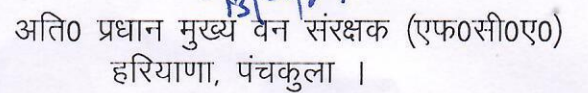 अति0 प्रधान मुख्य वन संरक्षक (एफ0सी0ए0)
हरियाणा, पंचकुला ।